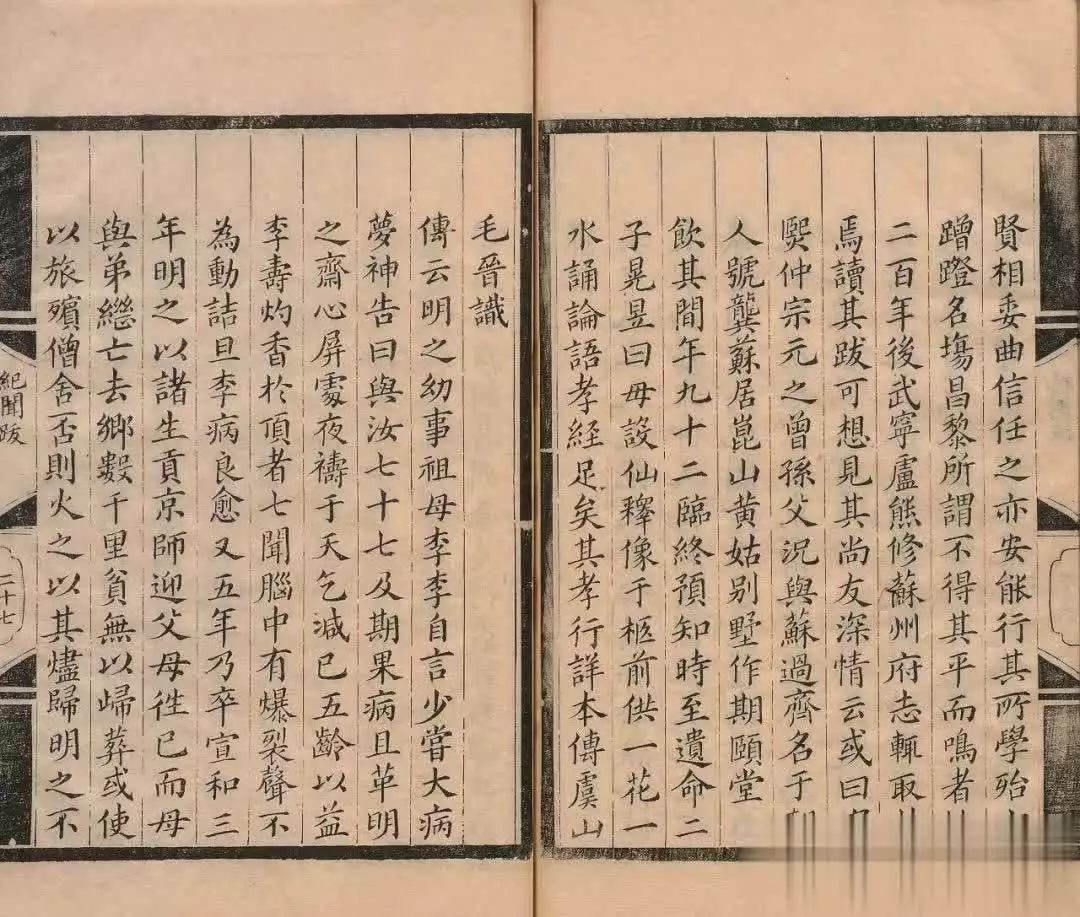 賢相委曲信任之亦安能行其所學殆
蹭蹬名塲昌黎所謂不得其平而鳴者
二百年後武寧盧熊修蘇州府志輒取
焉讀其跋可想見其尚友深情云或曰
熙仲宗元之曾孫父況與蘇過齊名于
人號龔蘇居崑山黄姑别墅作期頤堂
飲其間年九十二臨終預知時至遺命二
子晃昱曰毋設仙釋像于柩前供一花一
水誦論語孝經足矣其孝行詳本傳虞山
毛晉識
傳云明之幼事祖母李李自言少嘗大病
夢神告曰與汝七十七及期果病且革明
之齋心屏處夜禱于天乞减已五齡以益
李壽灼香於頂者七聞腦中有爆裂聲不
為動詰旦李病良愈又五年乃卒宣和三
年明之以諸生貢京師迎父母徃已而母
與弟繼亡去鄉數千里貧無以歸葬或使
以旅殯僧舍否則火之以其燼歸明之不
紀聞跋
二十七